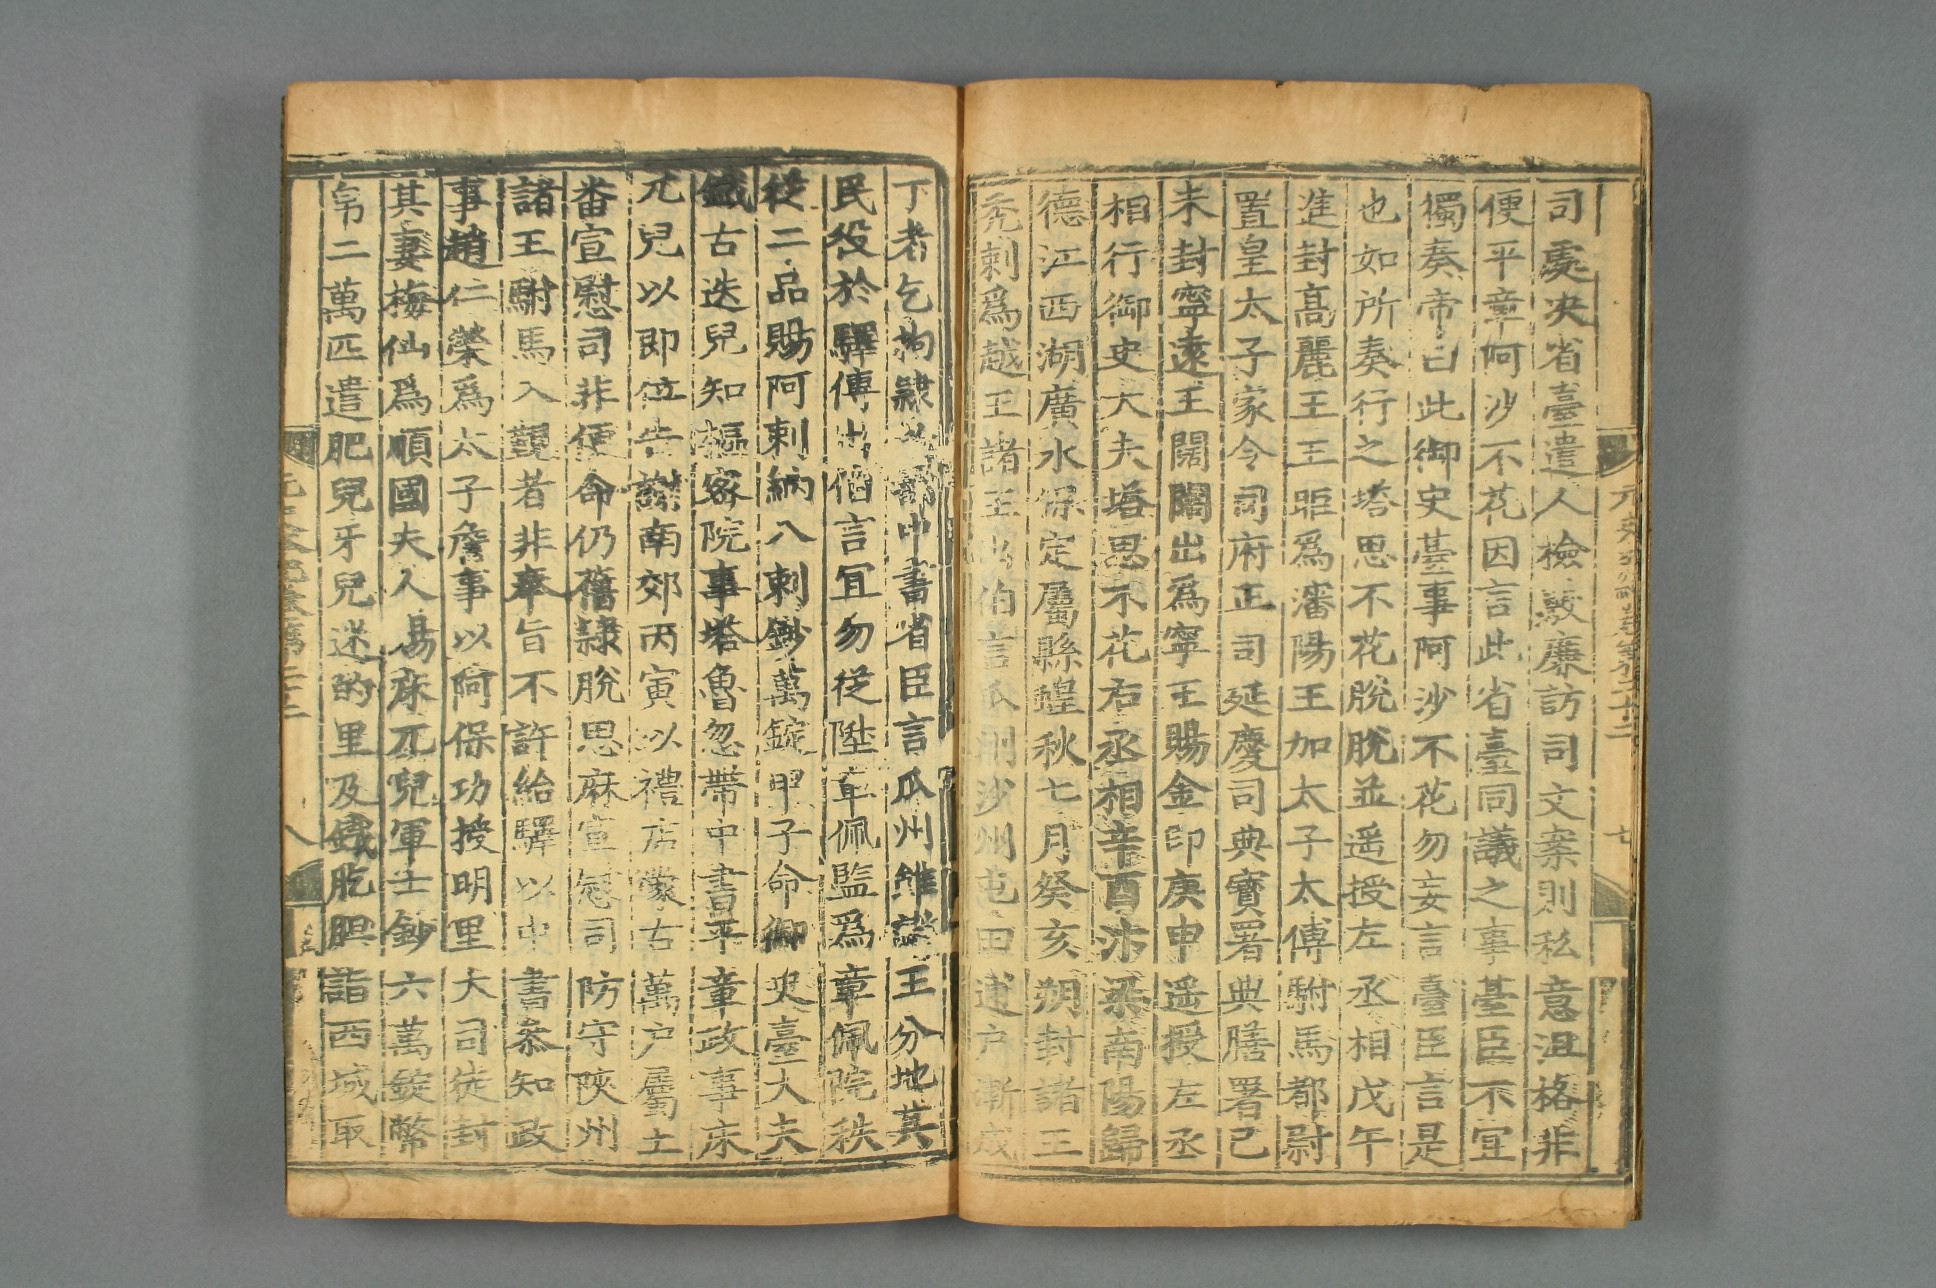 司處決省臺遣人檢覈廉訪司文案則私意沮格非
便平章阿沙不花因言此省臺同議之事臺臣不宜
獨奏帝曰此御史臺事阿沙不花勿妄言臺臣言是
也如所奏行之塔思不花脫脫並遥授左丞相戊午
進封高麗王王昛爲瀋陽王加太子太傅駙馬都尉
置皇太子家令司府正司延慶司典寶署典膳署己
未封寧遠王闊闊出爲寧王賜金印庚申遥授左丞
相行御史大夫塔思不花右丞相辛酉汴梁南陽歸
德江西湖廣水保定屬縣蝗秋七月癸亥朔封諸王
禿剌爲越王諸王出伯言瓜州沙州屯田逋戶漸成
丁者乞拘隸所部中書省臣言瓜州雖諸王分地其
民役於驛傳出伯言宜勿從陞章佩監爲章佩院秩
從二品賜阿剌納八剌鈔萬錠甲子命御史臺大夫
鐵古迭兒知樞密院事塔魯忽帶中書平章政事床
兀兒以即位告謝南郊丙寅以禮店蒙古萬戶屬土
番宣慰司非便命仍舊隸脫思麻宣慰司防守陝州
諸王駙馬入覲者非奉旨不許給驛以中書叅知政
事趙仁榮爲太子詹事以阿保功授明里大司徒封
其妻梅仙爲順國夫人易床兀兒軍士鈔六萬錠幣
帛二萬匹遣肥兒牙兒迷的里及鐵肐胆詣西域取